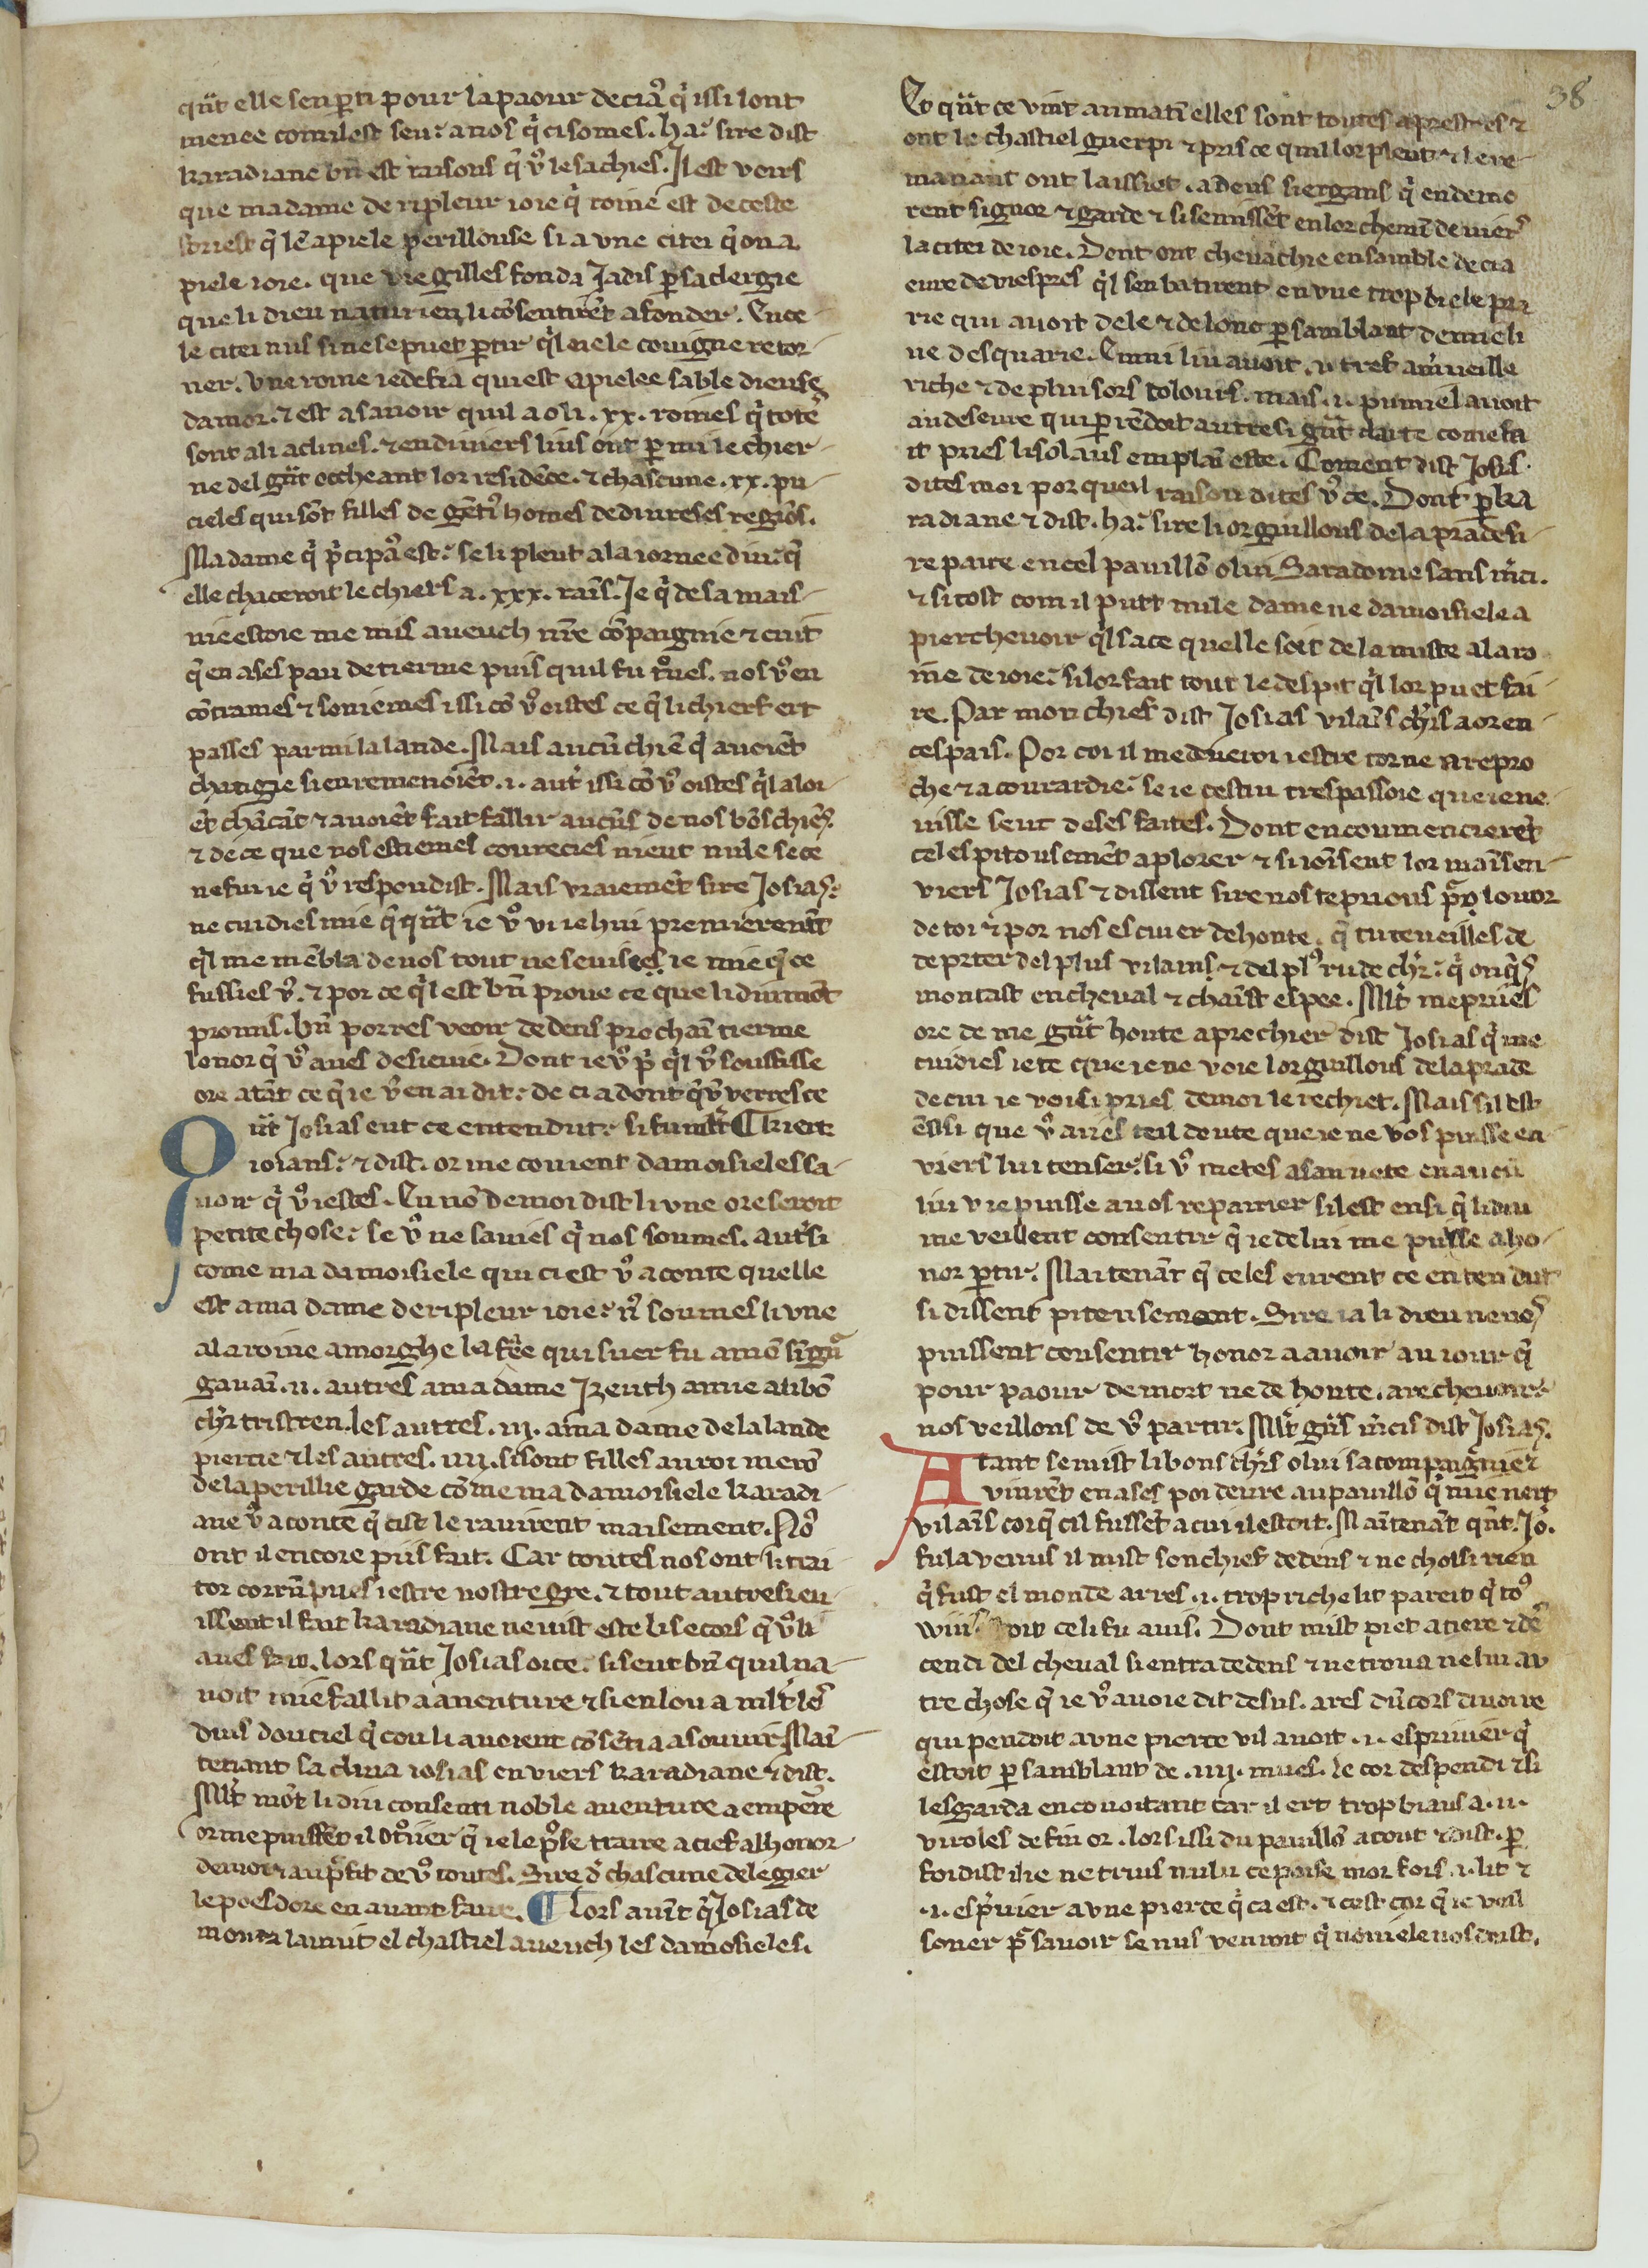 38
qu̅t elle sen ꝑti pour la paour de cia᷒ q̇ issi lont
menee comil est seu᷒ a nos q̇ ci somes. ha᷒ sire dist
karadiane bn̅ est raisons q̅ v᷒ le sachies. Il est voirs
que madame de ripleur ioie q̇ roine est de ceste
foriest q̅ le̅ apiele perillouse si a vne citei q̅ on a
piele ioie. que viegilles fonda Jadis ꝑ sa clergie
que li dieu naturien li co̅sentire̅t a fonder. En ce
le citei nus si ne se puet ꝑtir q̅l ciele couigne retor
ner. vne roine iedefia qui est apielee sable dieuse
damor. ⁊ est asauoir quil a o li .xx. roines q̇ totes
sont a li aclines. ⁊ en diuiers lius ont ꝑmi le chier
ne del gu̅t occheant lor reside̅ce. ⁊ chascune .xx. pu
cieles qui so̅t filles de ge̅ti᷒ homes de diuerses regio̅s.
Madame q̇ p̅cipa᷒ est᷒ se li pleut a la iornee diu᷒ q̅
elle chaceroit le chiers a .xxx. rai̅s. Je q̇ de sa mais
nie estoie me mis aueuch nr̅e co̅paignie ⁊ cuit
q̅ en ases pau de tierme puis quil fu t᷒ues. nos v᷒ en
co̅trames ⁊ soniemes issi co̅ v᷒ oistes ce q̅ li chierf ert
passes parmi la lande. Mais aucu̅ chie̅ q̇ auoie̅t
changie si enremenoie̅t .i. aut̅ issi co̅ v᷒ oistes q̅l aloi
e̅t cha̅ca̅t ⁊ auoie̅t fait fallir aucu̅s de nos bo̅s chie̅s.
⁊ de ce que nos estiemes courecies nieut nule se ce
ne fu ie q̇ v᷒ respondist. Mais vraieme̅t sire Josias᷒
ne cuidies mie q̅ qu̅t ie v᷒ vi iehui premierem̅t
q̅l me me̅bla de uos tout ne seuisces ie mie q̅ ce
fussies v᷒. ⁊ por ce q̅l est bn̅ proue ce que li diu mo̅t
promis. bn̅ porres veoir dedens prochai̅ tierme
lonor q̅ v᷒ aues desieruie. Dont ie v᷒ p̅ q̅l v᷒ souffisse
ore ata̅t ce q̅ ie v᷒ en ai dit᷒ de ci adont q̅ v᷒ verres ce
Qu̅t Josias eut ce entendut᷒ si fu mlt̅ ¶ kiert
ioians᷒ ⁊ dist. or me couient damoisieles sa
uoir q̇ v᷒ iestes. En no̅ de moi dist li vne ore seroit
petite chose᷒ se v᷒ ne sauies q̇ nos soumes. aut̅si
come ma damoisiele qui ci est v᷒ a conte quelle
est a ma dame de ripleur ioie᷒ n᷒ soumes li vne
a la roine amorghe la fee̅ qui suer fu amo̅ sign̅
gauai̅. ii. autres a ma dame Izeuth amie a li bo̅
chr̅ tristren. les autres .iij. a ma dame de la lande
piercie ⁊ les autres .iiij. si sont filles au roi mero̅
de la perillie garde co̅me ma damoisiele karadi
ane v᷒ a conte q̅ cist le rauirent maisement. No᷒
ont il encore piis fait. Car toutes nos ont li trai
tor corru̅pues iestre nostre gre. ⁊ tout autresi en
issent il fait karadiane ne uist este li secors q̅ v᷒ li
aues fait. lors qu̅t Josias oi ce᷒ si seut bn̅ quil na
uoit mie fallit a auenture ⁊ si en loua mlt̅ les
dius dou ciel q̅ cou li auoient co̅se̅ti a asouuir. Mai̅
tenant sa cliua iosias enuiers karadiane ⁊ dist.
Mlt̅ mo̅t li diu consenti noble auenture a empre̅re
or me puisse̅t il ot᷒ier q̅ ie le p᷒se traire a cief al honor
de moi ⁊ au p᷒fit de v᷒ toutes. Sire d̅ chascune de legier
le poes dore en auant faire. ¶ Lors aui̅t q̅ Josias de
moura la nuit el chastiel aueuch les damosieles.
Et qu̅t ce vint au mati̅ elles sont toutes aprestees ⁊
ont le chastiel guerpi ⁊ pris ce quil lor pleut ⁊ le re
manant ont laissiet. a deus siergans q̇ en demo
rent signor ⁊ garde ⁊ si se misse̅t en lor chemi̅ de uiers
la citei de ioie. Dont ont cheuachie ensamble de cia
eure de viespres q̅l sen batirent en vne trop biele pra
rie qui auoit de le ⁊ de lonc ꝑ samblant demie li
ue desquarie. Enmi liu auoit .i. tref a mr̅ueille
riche ⁊ de pluisors colours. mais .i. pumiel auoit
au deseure qui ꝑ re̅doit autresi gu̅t clarte come fa
it pries li solaus em plai̅ este. Coment dist Josi̅s
dites moi por queil raison dites v᷒ ce. Dont ꝑla ka
radiane ⁊ dist. ha᷒ sire li orguillous de la prade si
repaire en cel pauillo̅ o lui Saradoine sans mr̅ci.
⁊ si tost com il puet nule dame ne damoisiele a
pierchevoir q̅l sace quelle soit de la miste a la ro
ine de ioie᷒ si lor fait tout le despit q̅l lor puet fai
re. Par mon chief dist Josias vilai̅s chr̅s a or en
cest pais. Por coi il me deueroi iestre torne a repro
che ⁊ a couardie᷒ se ie cestui trespassoie que ie ne
uisse seut de ses faites. Dont encoumenciere̅t
celes pitouseme̅t a plorer ⁊ si ioi̅sent lor mai̅s en
viers Josias ⁊ dissent sire nos te prions p̅ lonor
de toi ⁊ por nos escuier de honte. q̅ tu te ueilles de
de ptrer del plus vilains ⁊ del pl᷒ rude chr̅᷒ q̇ onq̅s
montast en cheual ⁊ chai̅st espee. Mlt̅ me priies
ore de me gu̅t honte a prechier dist Josias q̇ me
cuidies iete que ie ne voie lorguillous de la prade
de cui ie voi si pries de moi le rechiet. Mais sil est
e̅si que v᷒ aues teil doute que ie ne vos puisse en
viers lui tenser᷒ si v᷒ metes a sauuete en aucu̅
liu v ie puisse a uos repairier sil est ensi q̅ li diu
me veillent consentir q̅ ie de lui me puisse a ho
nor ꝑtir. Maitena̅t q̅ celes eurent ce entendut
si dissent piteusement. Sire ia li dieu ne nos
puissent consentir honor a auoir au iour q̅
pour paour de mort ne de honte. a recheuoir᷒
nos veillons de v᷒ partir. Mlt̅ gu̅s mr̅cis dist Josias.
Atant se mist li bons chr̅s o lui sa compaignie ⁊
vinre̅t en ases poi deure au pauillo̅ q̇ mie nert
vilai̅s corq̅ cil fusse̅t a cui il estoit. Mai̅tena̅t qu̅t Jo᷒.
fu la venus il mist son chief dedens ⁊ ne choisi rien
q̇ fust el monde arres .i. trop riche lit pareit q̇ to᷒
wiis estoit ce li fu auis. Dont mist piet a tiere ⁊ des
cendi del cheual si entra dedens ⁊ ne troua ne lui au
tre chose q̅ ie v᷒ auoie dit desus. ares du̅ cors diuoire
qui pendoit a vne pierce v il auoit .i. espriuier q̇
estoit ꝑ samblant de .iiij. mues. le cor despendi ⁊ si
lesgarda en couoitant car il ert trop biaus a .ii.
viroles de fin or. lors issi du pauillo̅ a tout ⁊ dist. ꝑ
foi dist il ie ne truis nului ce poise moi fors .i. lit ⁊
.i. esp̅uier a vne pierce q̇ ca est. ⁊ cest cor q̅ ie voil
soner p̅ sauoir se nus venroit q̇ nouiele nos deist.